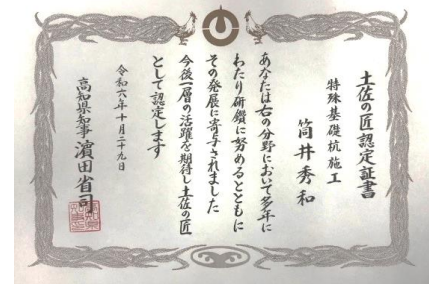 土佐の匠認定証書
特殊基礎杭施工
筒井秀和
あなたは右の分野において多年に
わたり研鑽に努めるとともに
その発展に寄与されました
今後一層の活躍を期待し土佐の匠
として認定します
令和六年十月二十九日
高知県知事 濵田省司